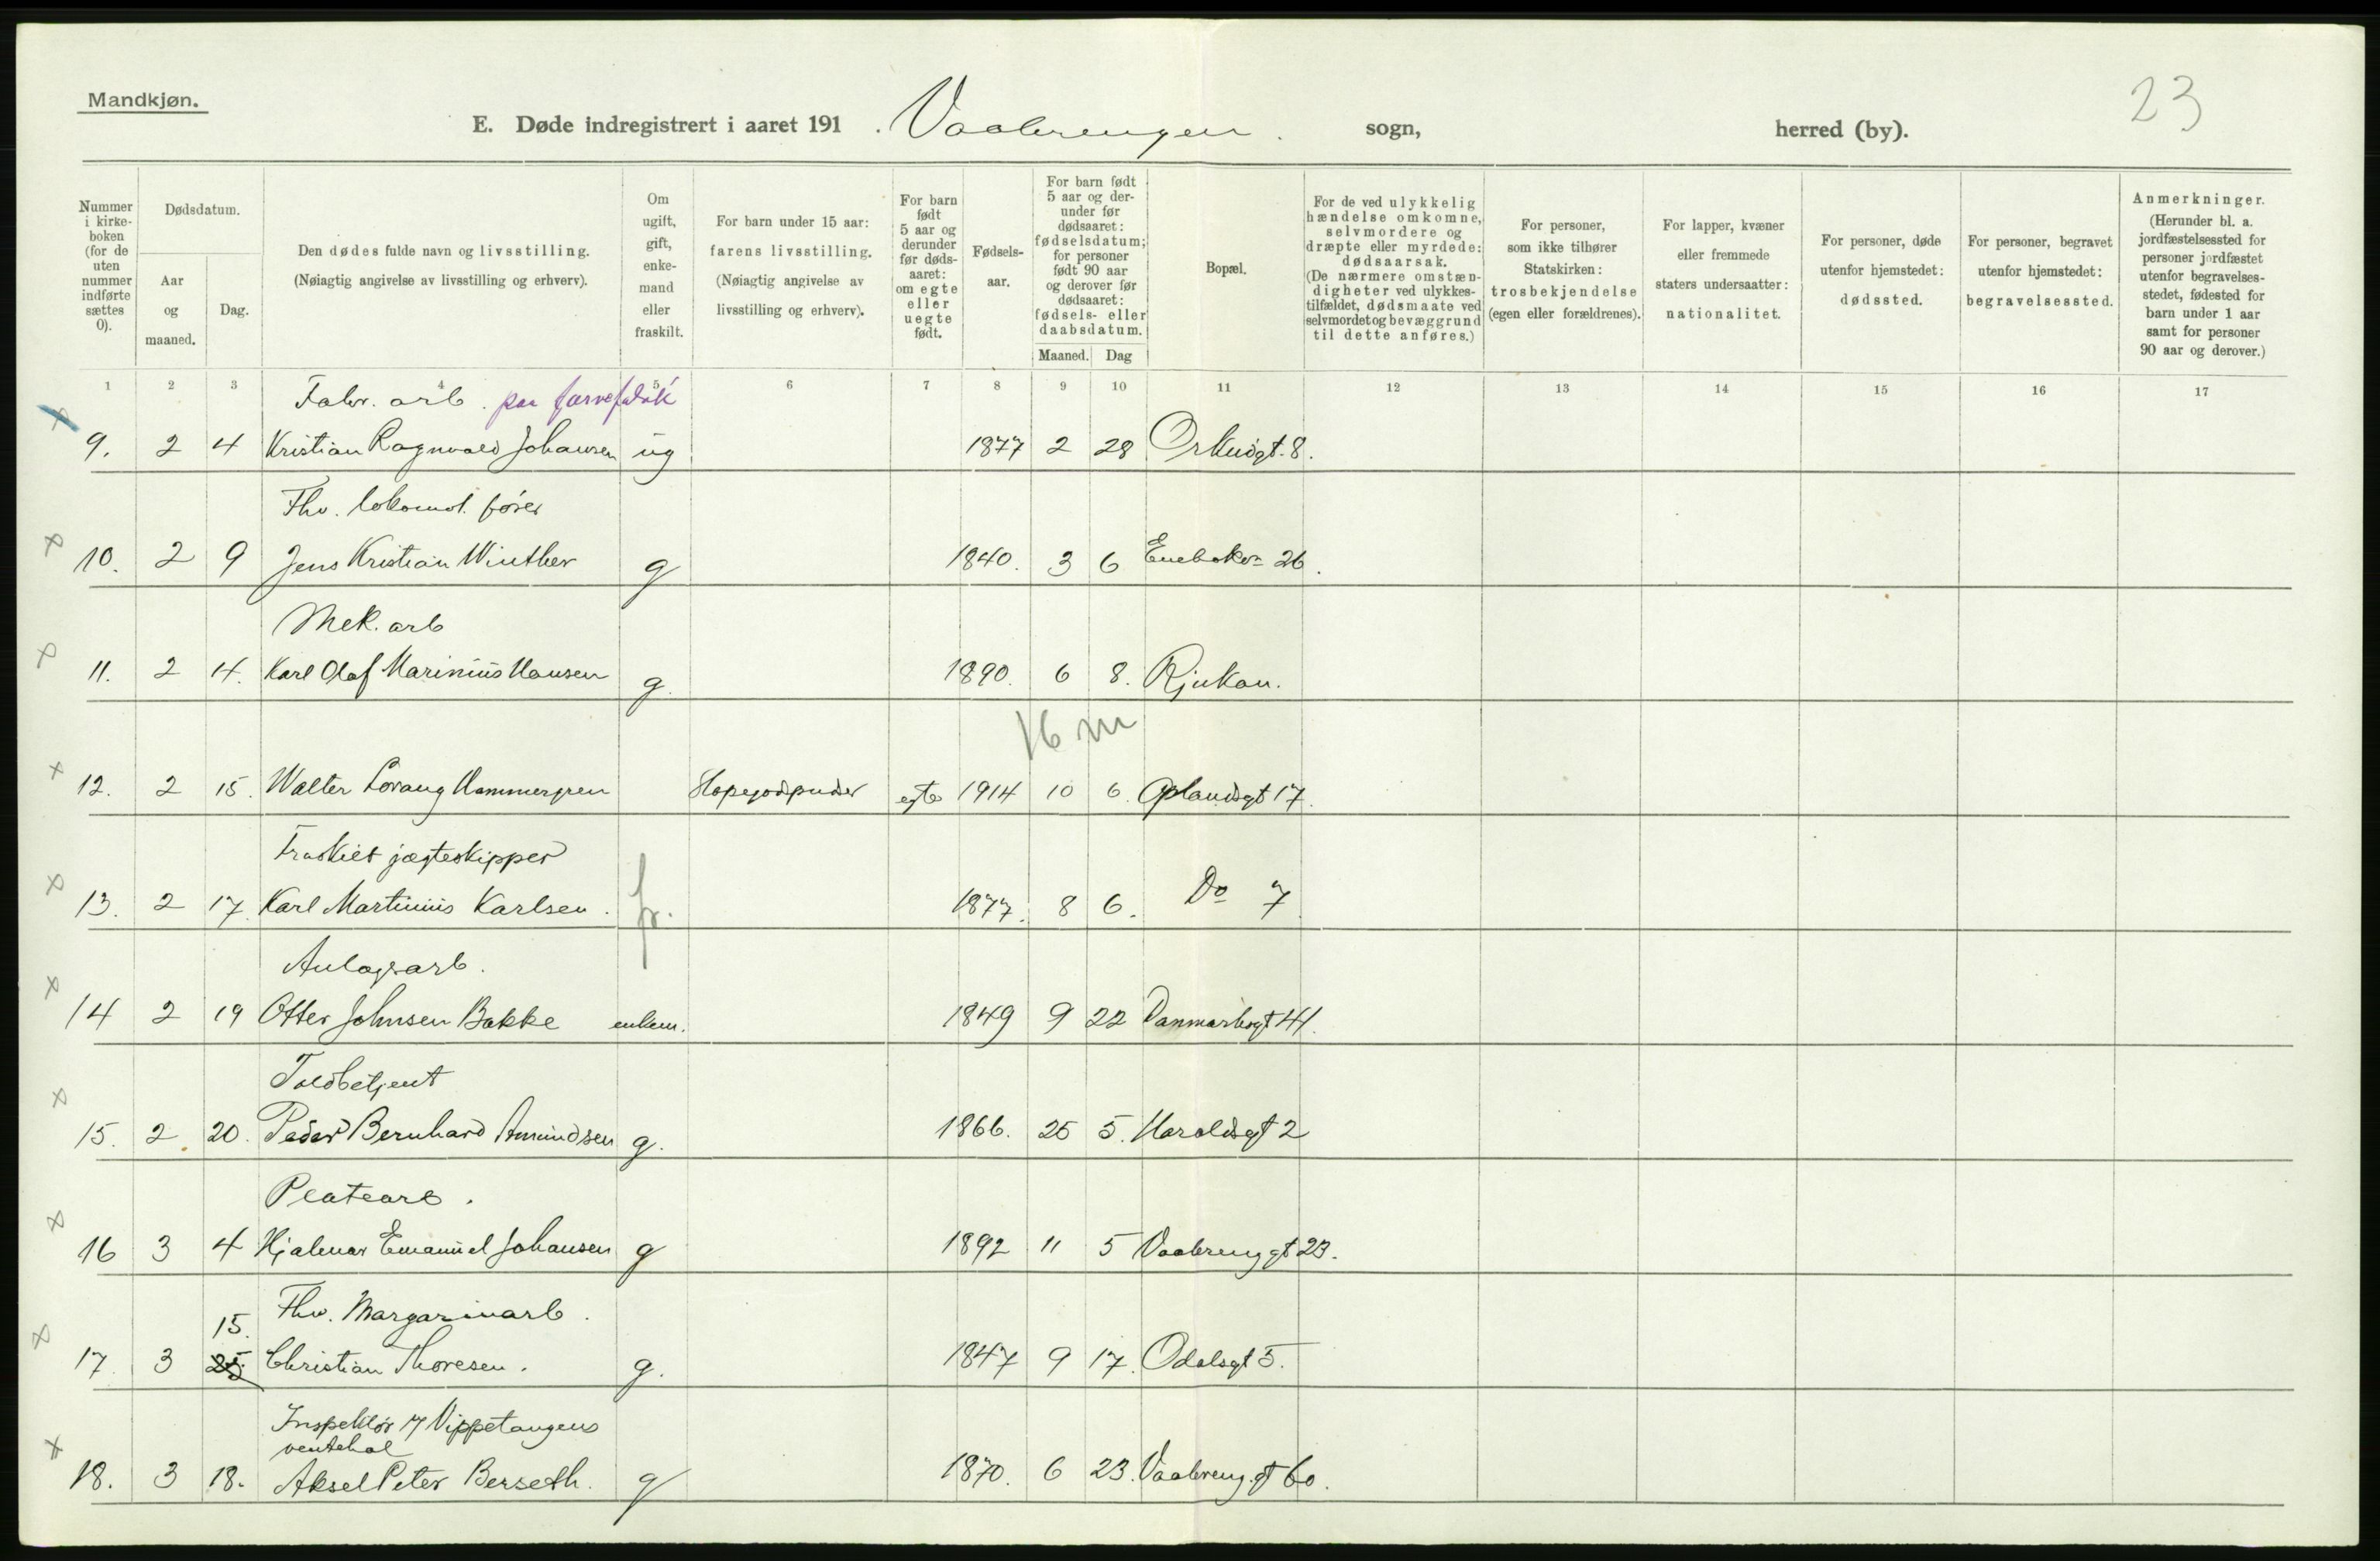 Mandkjøn.
23
E. Døde indregistrert i aaret 191 . Vaalerengen . sogn, herred (by).
Nummer i kirke-boken (for de uten nummer indførte sættes 0).
Dødsdatum.
Aar og maaned.
Dag.
Den dødes fulde navn og livsstilling.
(Nøiagtig angivelse av livsstilling og erhverv).
Om ugift, gift, enke-mand eller fraskilt.
For barn under 15 aar: farens livsstilling.
(Nøiagtig angivelse av livsstilling og erhverv).
For barn født 5 aar og derunder før døds-aaret: om egte eller uegte født.
Fødsels-aar.
For barn født 5 aar og der-under før dødsaaret: fødselsdatum; for personer født 90 aar og derover før dødsaaret: fødsels- eller daabsdatum.
Maaned. Dag
Bopæl.
For de ved ulykkelig hændelse omkomne, selvmordere og dræpte eller myrdede: dødsaarsak.
(De nærmere omstæn-digheter ved ulykkes-tilfældet, dødsmaate ved selvmordet og bevæggrund til dette anføres.)
For personer, som ikke tilhører Statskirken: trosbekjendelse (egen eller forældrenes).
For lapper, kvæner eller fremmede staters undersaatter: nationalitet.
For personer, døde utenfor hjemstedet: dødssted.
For personer, begravet utenfor hjemstedet: begravelsessted.
Anmerkninger.
(Herunder bl. a. jordfæstelsessted for personer jordfæstet utenfor begravelses-stedet, fødested for barn under 1 aar samt for personer 90 aar og derover.)
1 2 3 4 5 6 7 8 9 10 11 12 13 14 15 16 17
Fabr. arb. paa farvefabrik
9. 2 4 Kristian Ragnvald Johansen ug 1877 2 28 Orknøigt. 8.
Fhv. lokomot. fører
10. 2 9 Jens Kristian Winther g 1840. 3 6 Enebakv. 26.
Mek. arb
11. 2 14. Karl Olaf Marinius Hansen g. 1890. 6 8. Rjukan.
16 m
12. 2 15. Walter Lorang Hammergren egte 1914 10 6. Oplandsgt 17.
Fraskilt jægteskipper
13. 2 17. Karl Martinius Karlsen. fr. 1877. 8 6. Do 7
Anlægsarb.
14 2 19 Otter Johnsen Bakke enkem. 1849 9 22 Danmarksgt 41.
Toldbetjent
15. 2 20. Peder Bernhard Amundsen g. 1866. 25 5. Haraldsgt 2
Platearb.
16 3 4 Hjalmar Emanuel Johansen g 1892 11 5 Vaalereng gt 23.
Fhv. Margarinarb.
15.
17. 3 25. Christian Thoresen. g. 1847 9 17. Odalsgt 5.
Inspektør Vippetangens
ventehal
18. 3 18. Aksel Peter Berseth. g 1870. 6 23. Vaalereng. gt 60.